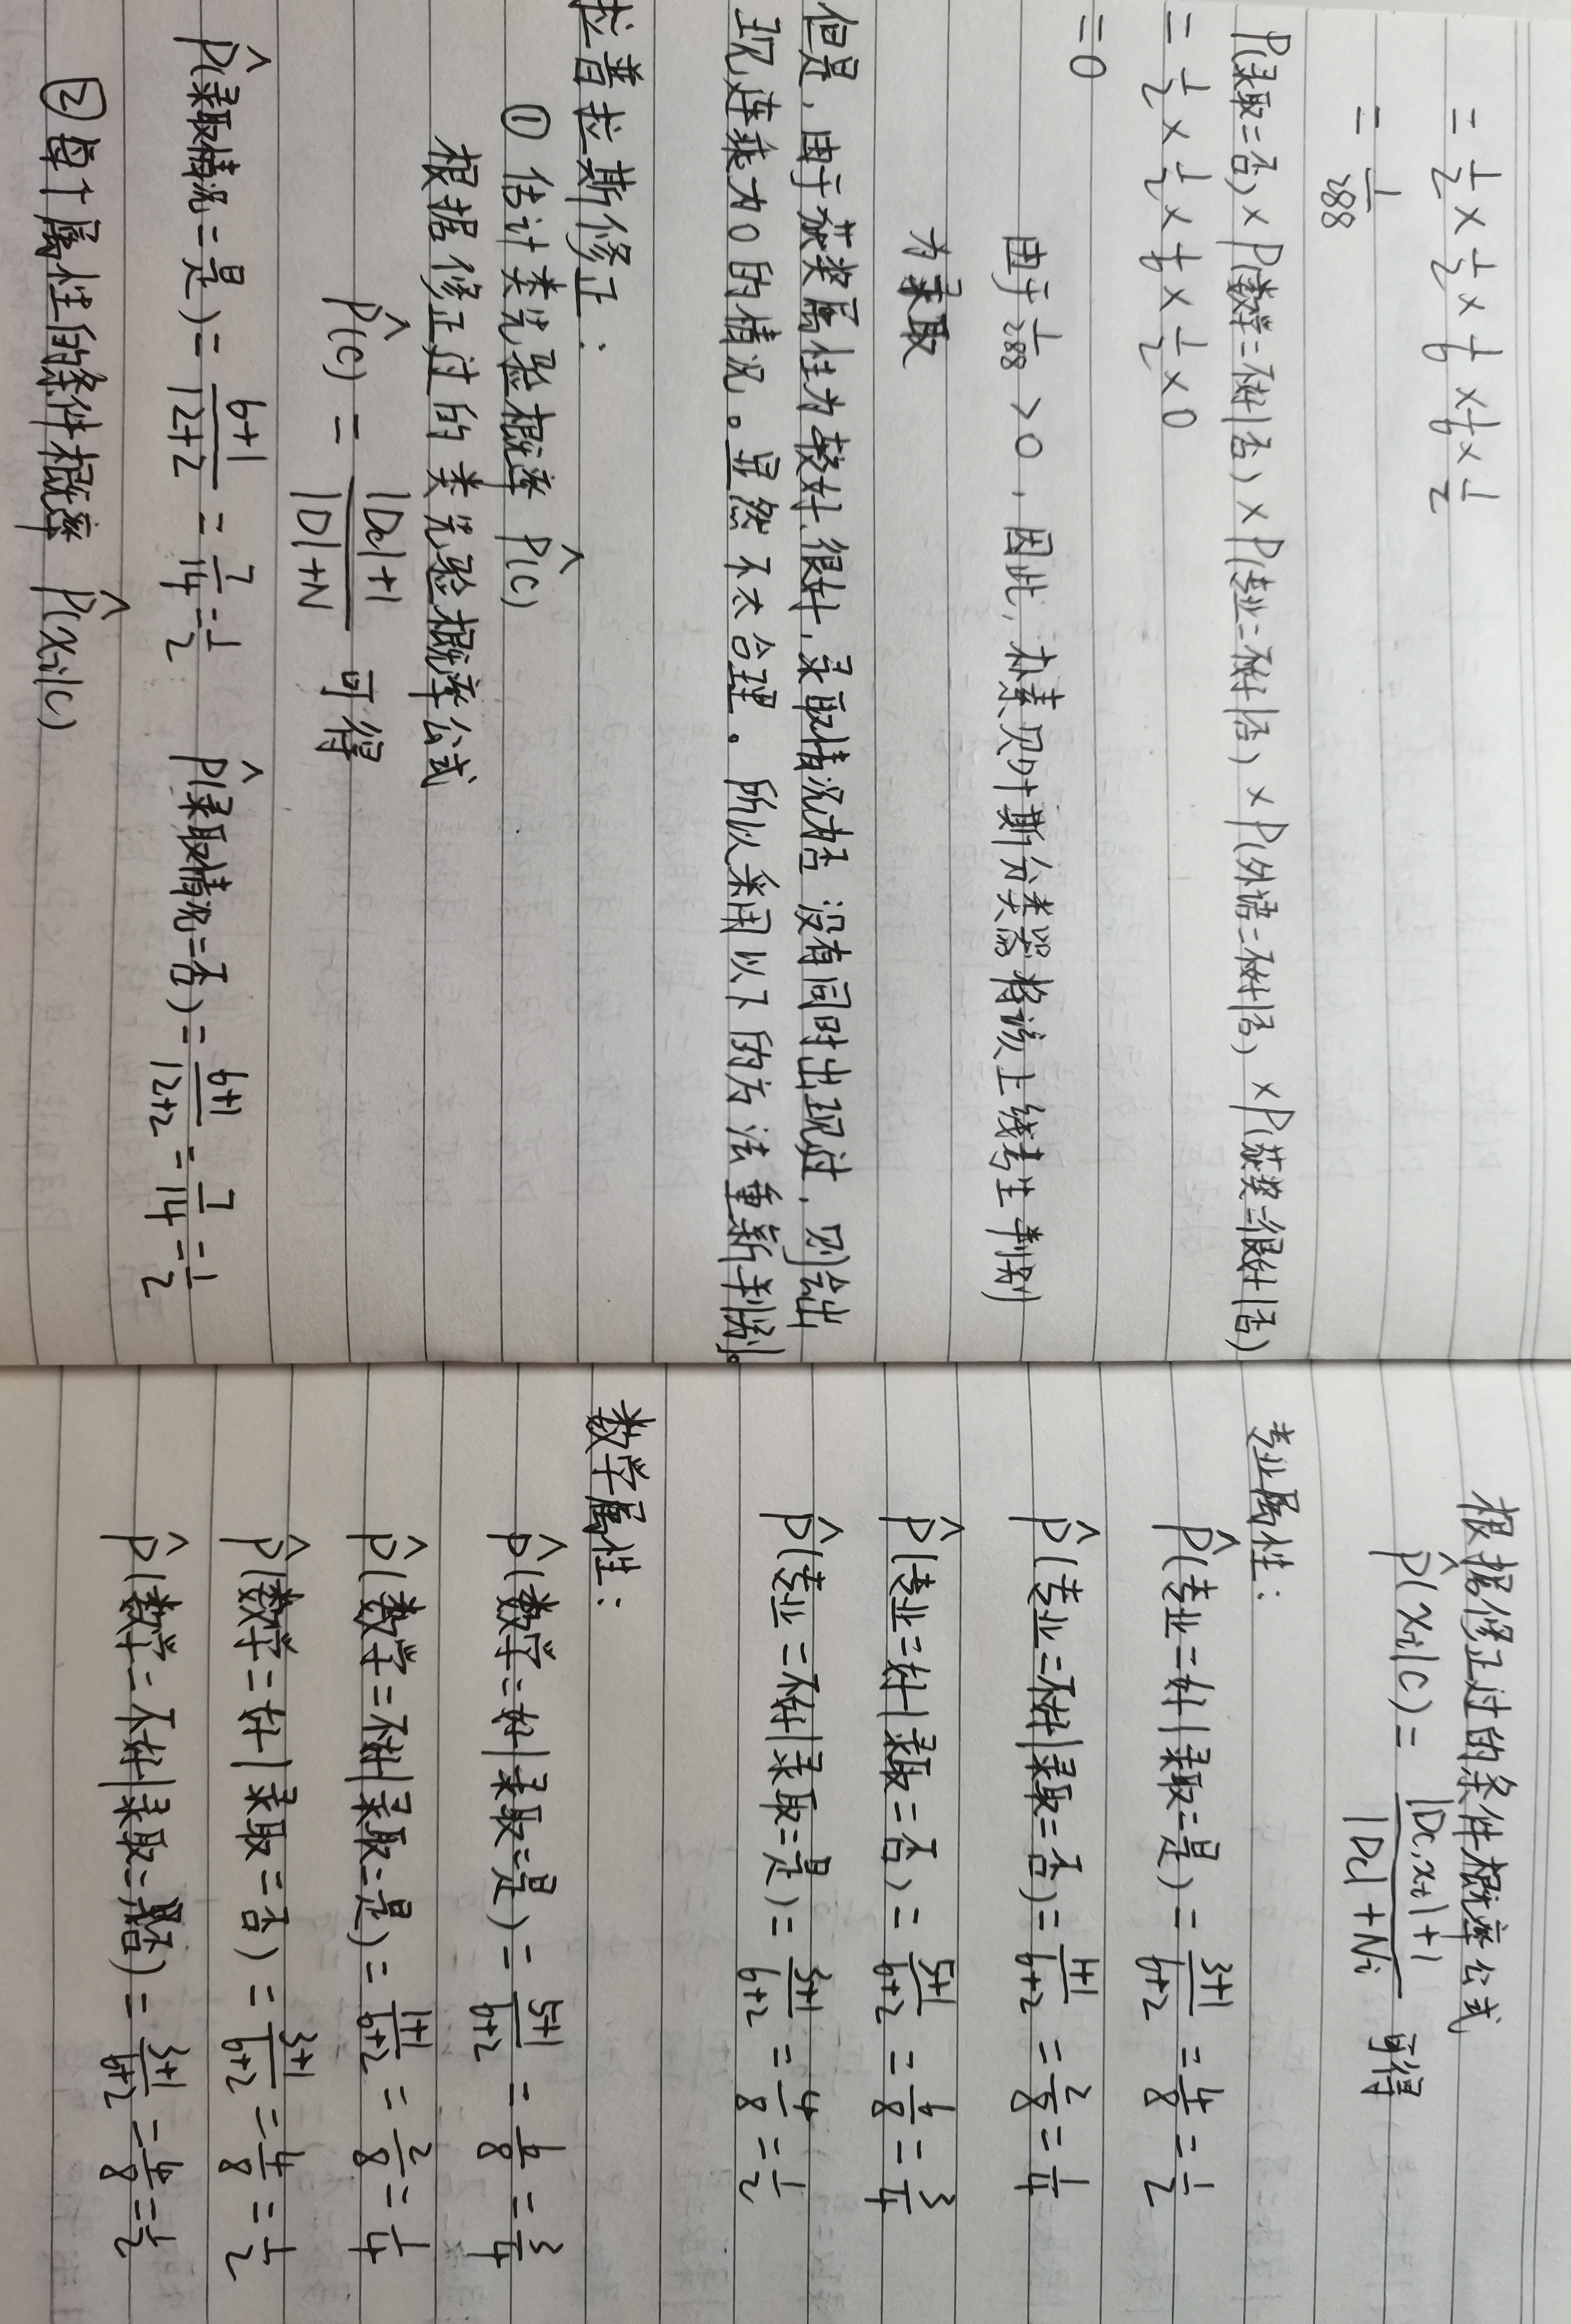 = 1/2 × 1/2 × 1/6 × 1/6 × 1/2
= 1/288
P(录取=否) × P(数学=不好|否) × P(专业=不好|否) × P(外语=不好|否) × P(获奖=很好|否)
= 1/2 × 1/2 × 1/6 × 1/2 × 0
= 0
由于 1/288 > 0 , 因此, 朴素贝叶斯分类器将该上线考生判别
为录取
但是, 由于获奖属性为较好、很好, 录取情况为否 没有同时出现过, 则会出
现连乘为0的情况。显然不太合理。所以采用以下的方法重新判别。
拉普拉斯修正:
① 估计类先验概率 P̂(c)
根据修正过的类先验概率公式
P̂(c) = (|Dc|+1)/(|D|+N) 可得
P̂(录取情况=是) = (6+1)/(12+2) = 7/14 = 1/2 P̂(录取情况=否) = (6+1)/(12+2) = 7/14 = 1/2
② 每个属性的条件概率 P̂(xi|c)
根据修正过的条件概率公式
P̂(xi|c) = (|Dc,xi|+1)/(|Dc|+Ni) 可得
专业属性:
P̂(专业=好|录取=是) = (3+1)/(6+2) = 4/8 = 1/2
P̂(专业=不好|录取=否) = (1+1)/(6+2) = 2/8 = 1/4
P̂(专业=好|录取=否) = (5+1)/(6+2) = 6/8 = 3/4
P̂(专业=不好|录取=是) = (3+1)/(6+2) = 4/8 = 1/2
数学属性:
P̂(数学=好|录取=是) = (5+1)/(6+2) = 6/8 = 3/4
P̂(数学=不好|录取=是) = (1+1)/(6+2) = 2/8 = 1/4
P̂(数学=好|录取=否) = (3+1)/(6+2) = 4/8 = 1/2
P̂(数学=不好|录取=否) = (3+1)/(6+2) = 4/8 = 1/2